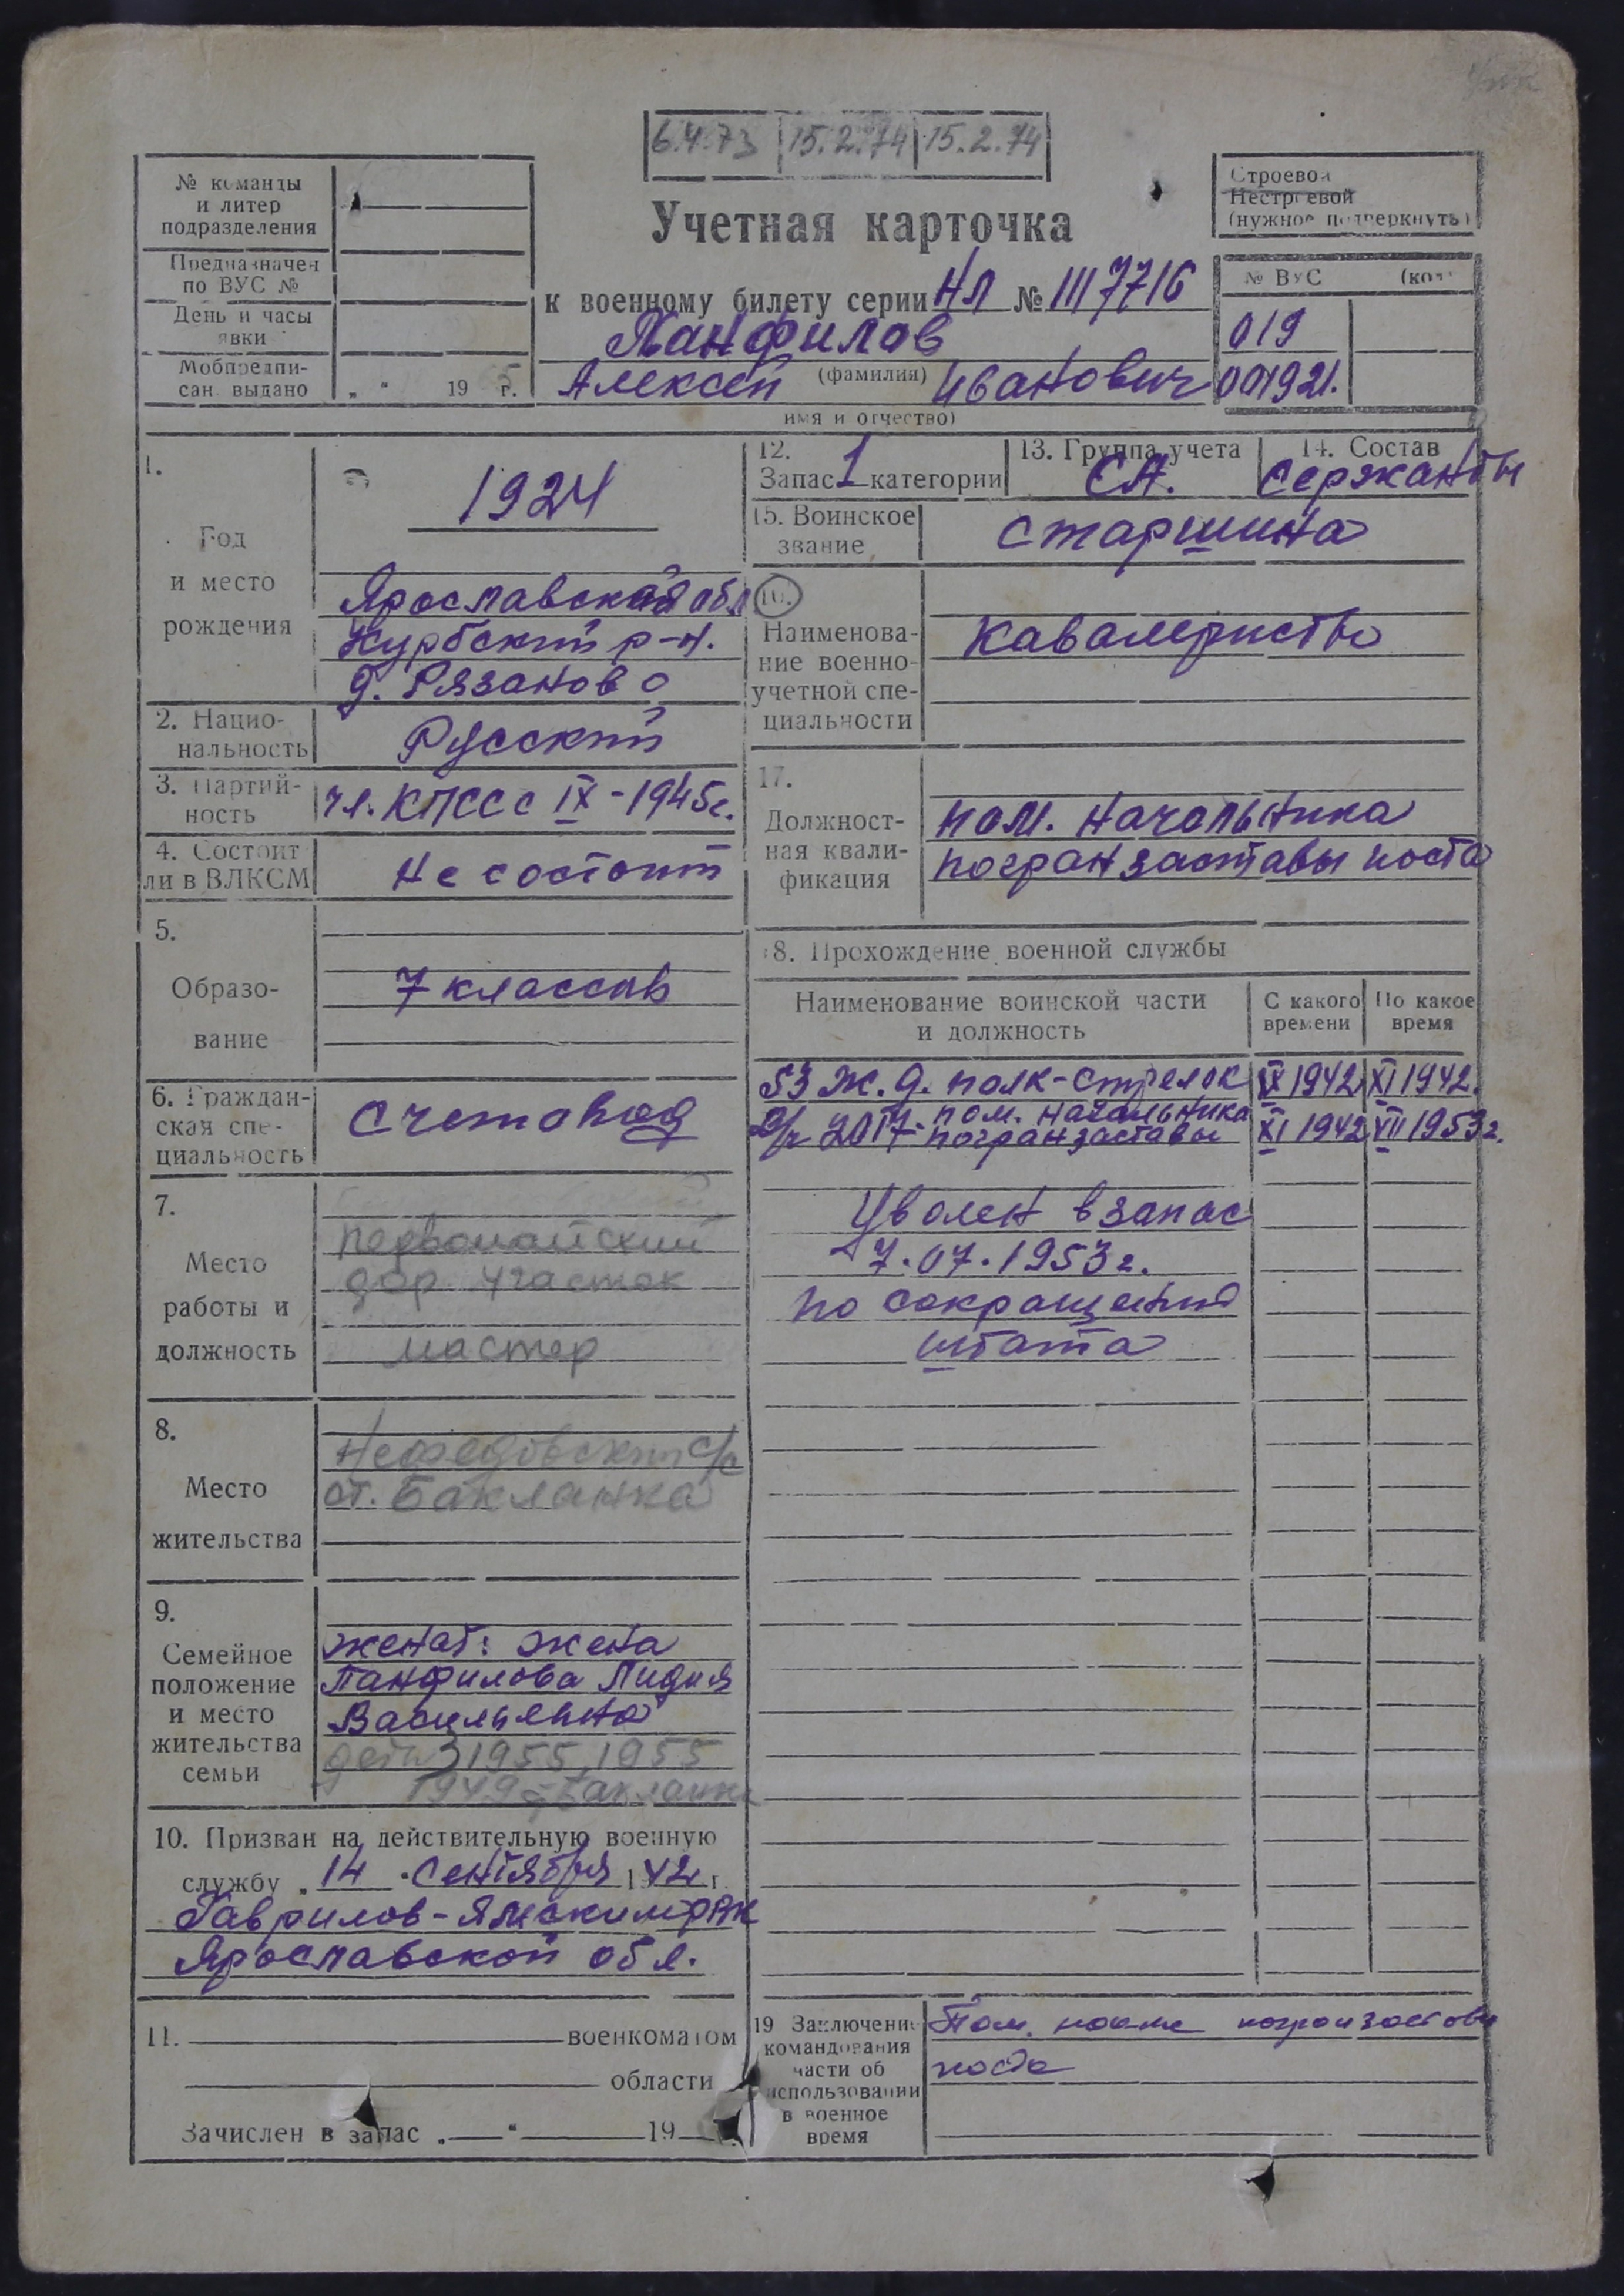 6.4.73 15.2.74 15.2.74
№ команды
и литер
подразделения
Предназначен
по ВУС №
День и часы
явки
Мобпредпи-
сан. выдано „ “ 19 г.
Учетная карточка
к военному билету серии НЛ № 1117716
Панфилов
(фамилия)
Алексей Иванович
имя и отчество)
Строевой
Нестроевой
(нужное подчеркнуть)
№ ВУС (код
019
001921.
1.
Год
и место
рождения
1924
Ярославская обл
Курбский р-н.
д. Рязаново
2. Нацио-
нальность
Русский
3. Партий-
ность
чл. КПСС с IX-1945г.
4. Состоит
ли в ВЛКСМ
Не состоит
5.
Образо-
вание
7 классов
6. Граждан-
ская спе-
циальность
Счетовод
7.
Место
работы и
должность
Первомайский
дор. участок
мастер
8.
Место
жительства
Нефедовский с/с
ст. Бакланка
9.
Семейное
положение
и место
жительства
семьи
женат: жена
Панфилова Лидия
Васильевна
дети 3 1955, 1955
1949 Бакланка
10. Призван на действительную военную
службу „ 14 “ Сентября 1942 г.
Гаврилов-Ямским РВК
Ярославской обл.
11. военкоматом
области
Зачислен в запас „ “ 19
12.
Запас 1 категории
13. Группа учета
СА.
14. Состав
Сержанты
15. Воинское
звание
Старшина
16.
Наименова-
ние военно-
учетной спе-
циальности
Кавалерист
17.
Должност-
ная квали-
фикация
пом. Начальника
погранзаставы поста
18. Прохождение военной службы
Наименование воинской части
и должность
С какого
времени
По какое
время
53 ж.д. полк-стрелок IX 1942 XI 1942.
В/ч 2017-пом. начальника
погранзаставы XI 1942 VII 1953г.
Уволен в запас
7.07.1953г.
по сокращению
штата
19 Заключение
командования
части об
использовании
в военное
время
Пом. погранзаставы
поста